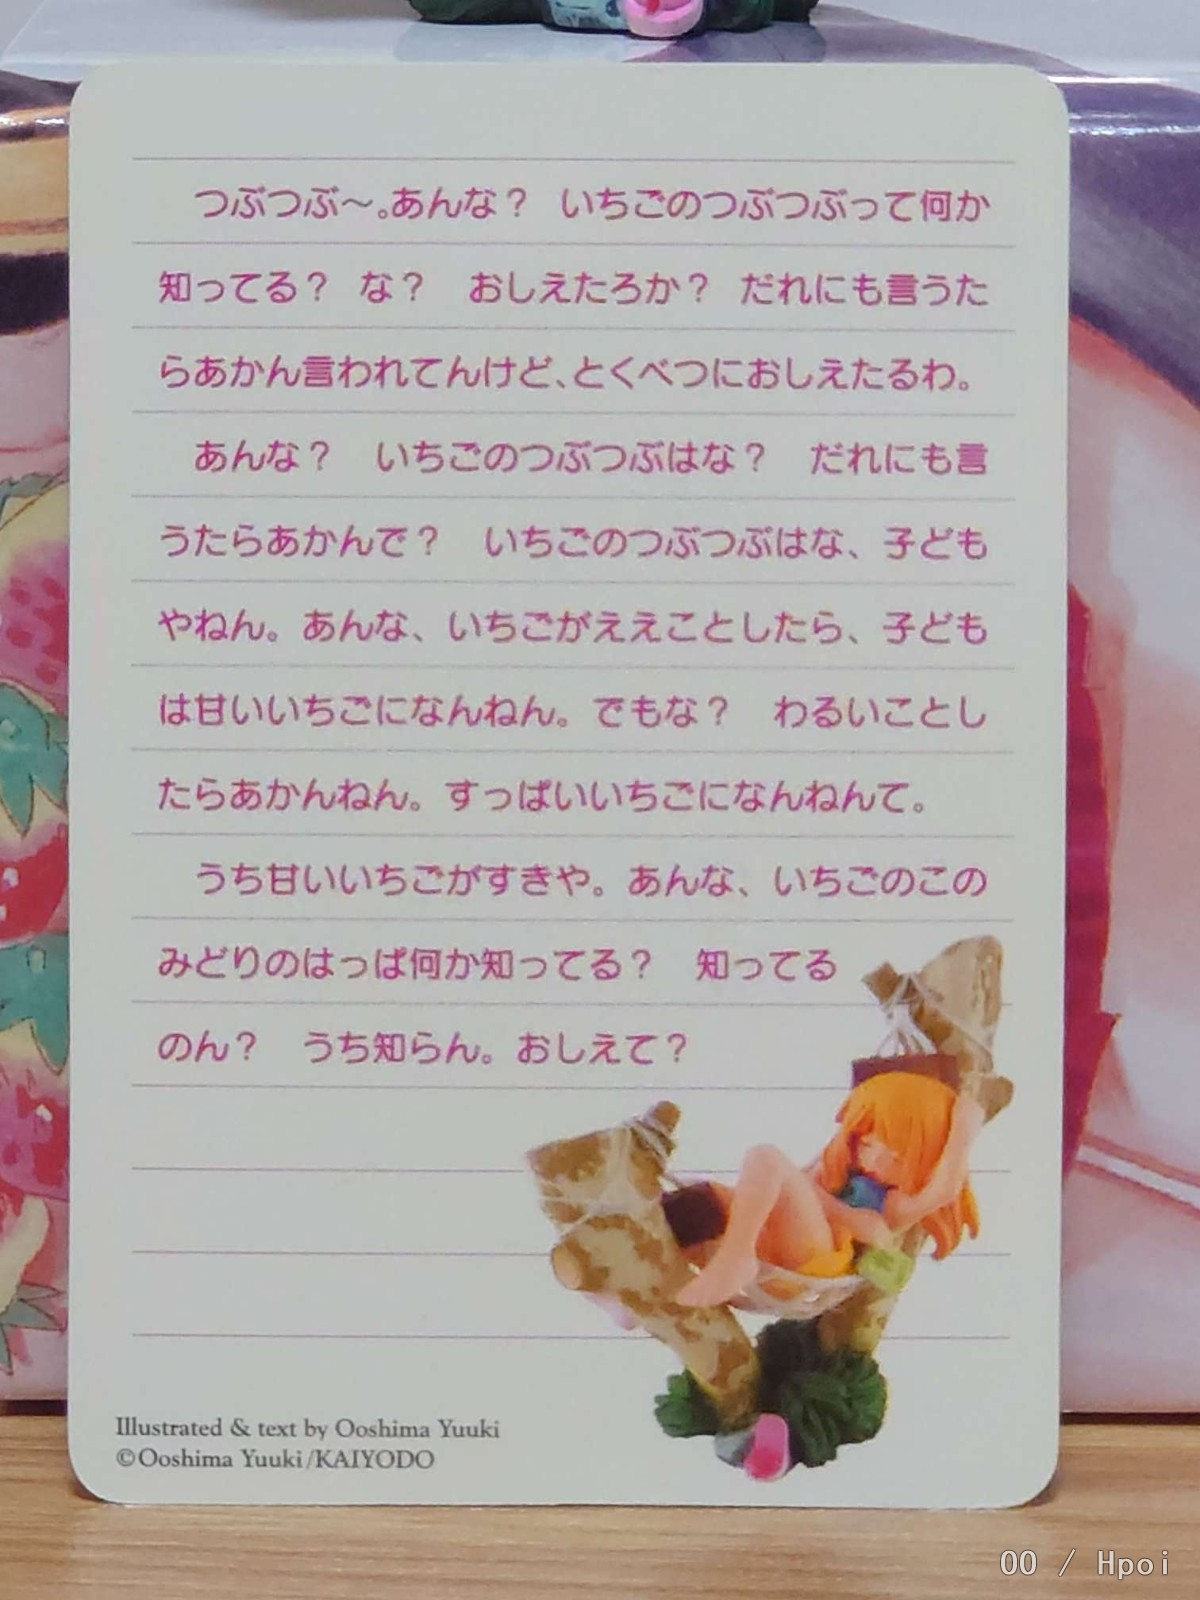 つぶつぶ～。あんな？　いちごのつぶつぶって何か
知ってる？　な？　おしえたろか？　だれにも言うた
らあかん言われてんけど、とくべつにおしえたるわ。
あんな？　いちごのつぶつぶはな？　だれにも言
うたらあかんで？　いちごのつぶつぶはな、子ども
やねん。あんな、いちごがええことしたら、子ども
は甘いいちごになんねん。でもな？　わるいことし
たらあかんねん。すっぱいいちごになんねんて。
うち甘いいちごがすきや。あんな、いちごのこの
みどりのはっぱ何か知ってる？　知ってる
のん？　うち知らん。おしえて？
Illustrated & text by Ooshima Yuuki
©Ooshima Yuuki/KAIYODO
00 / Hpoi